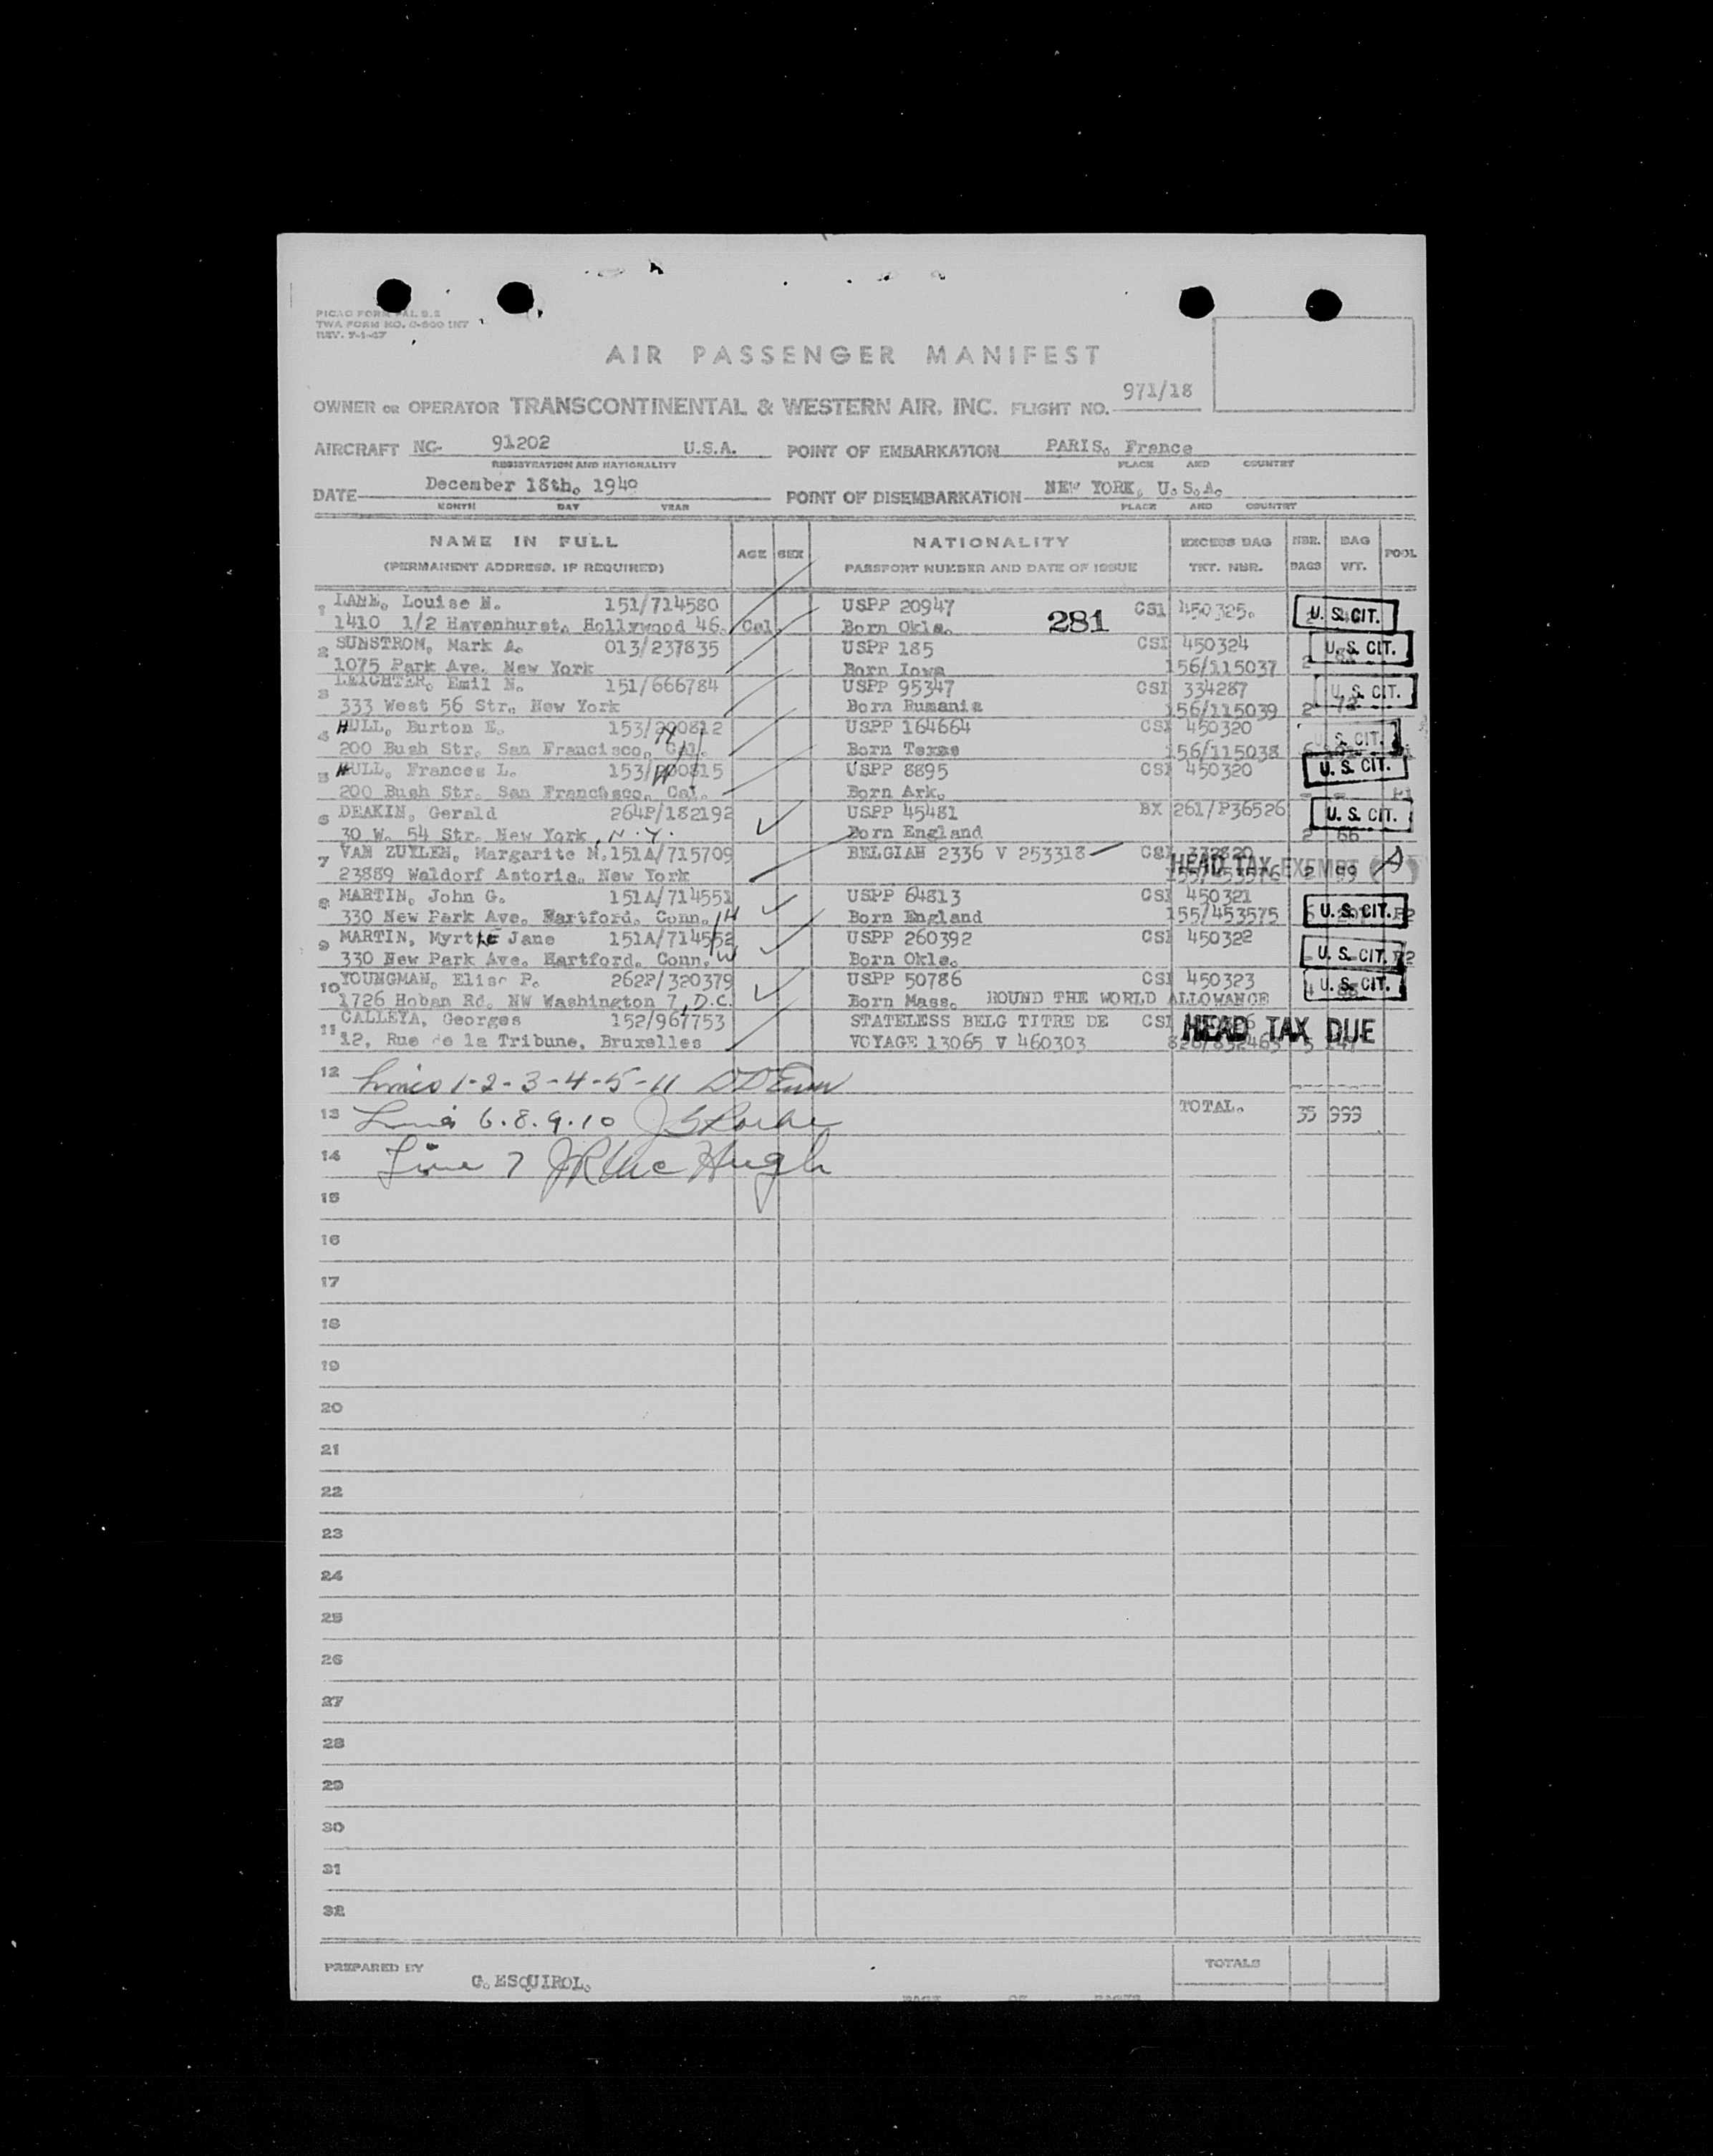 PICAO FORM PAL S.2
TWA FORM NO. O-800 INT
REV. 7-1-47
AIR PASSENGER MANIFEST
OWNER OR OPERATOR TRANSCONTINENTAL & WESTERN AIR, INC. FLIGHT NO. 971/18
AIRCRAFT NC- 91202 U.S.A. POINT OF EMBARKATION PARIS, France
REGISTRATION AND NATIONALITY PLACE AND COUNTRY
DATE December 18th, 1940 POINT OF DISEMBARKATION NEW YORK, U.S.A.
MONTH DAY YEAR PLACE AND COUNTRY
NAME IN FULL AGE SEX NATIONALITY EXCESS BAG NBR. BAG POOL
(PERMANENT ADDRESS, IF REQUIRED) PASSPORT NUMBER AND DATE OF ISSUE TKT. NBR. BAGS WT.
1 LANE, Louise N. 151/714580 USPP 20947 281 CSI 450325. U.S. CIT.
1410 1/2 Havenhurst, Hollywood 46, Cal Born Okla.
2 SUNSTROM, Mark A. 013/237835 USPP 185 CSI 450324 U.S. CIT.
1075 Park Ave. New York Born Iowa 156/115037 2
3 LEICHTER, Emil N. 151/666784 USPP 95347 CSI 334287 U.S. CIT.
333 West 56 Str. New York Born Rumania 156/115039 2 72
4 HULL, Burton E. 153/200812 USPP 164664 CSI 450320 U.S. CIT.
200 Bush Str. San Francisco, Cal. H Born Texas 156/115038
5 HULL, Frances L. 153/200815 USPP 8895 CSI 450320 U.S. CIT.
200 Bush Str. San Francisco, Cal. W Born Ark. P1
6 DEAKIN, Gerald 264P/182192 USPP 45481 BX 261/P36526 U.S. CIT.
30 W. 54 Str. New York, N.Y. Born England 2 66
7 VAN ZUYLEN, Margarite M. 151A/715709 BELGIAN 2336 V 253318 CSI 332820 HEAD TAX EXEMPT
23889 Waldorf Astoria, New York 155/453576 2 99
8 MARTIN, John G. 151A/714551 USPP 64813 CSI 450321 U.S. CIT.
330 New Park Ave. Hartford, Conn. H Born England 155/453575 P2
9 MARTIN, Myrtle Jane 151A/714552 USPP 260392 CSI 450322 U.S. CIT.
330 New Park Ave. Hartford, Conn. W Born Okla. P2
10 YOUNGMAN, Elise P. 262P/320379 USPP 50786 CSI 450323 U.S. CIT.
1726 Hoban Rd. NW Washington 7, D.C. Born Mass. ROUND THE WORLD ALLOWANCE
11 CALLEYA, Georges 152/967753 STATELESS BELG TITRE DE CSI HEAD TAX DUE
12, Rue de la Tribune, Bruxelles VOYAGE 13065 V 460303
12 Lines 1-2-3-4-5-11
13 Lines 6.8.9.10 TOTAL. 35 999
14 Line 7 JR McHugh
15
16
17
18
19
20
21
22
23
24
25
26
27
28
29
30
31
32
PREPARED BY G. ESQUIROL. TOTALS
PAGE OF PAGES